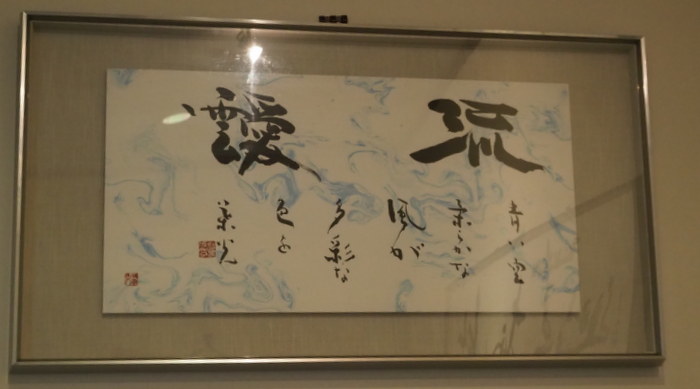 流靉
青い空
柔かな
風が
多彩な
色を